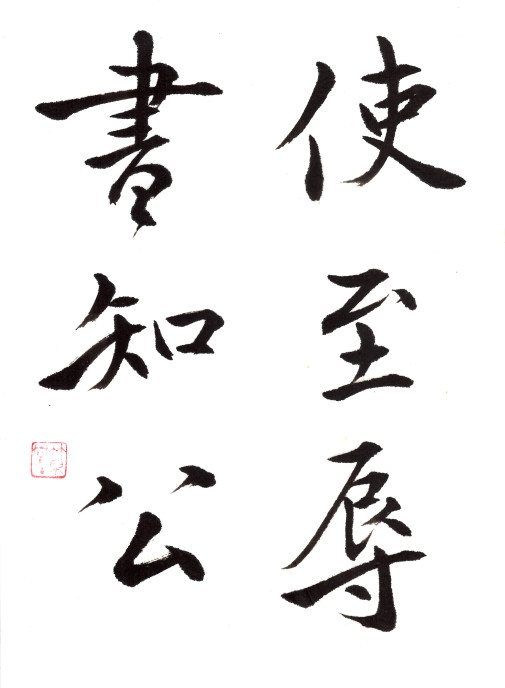 使至辱
書知公